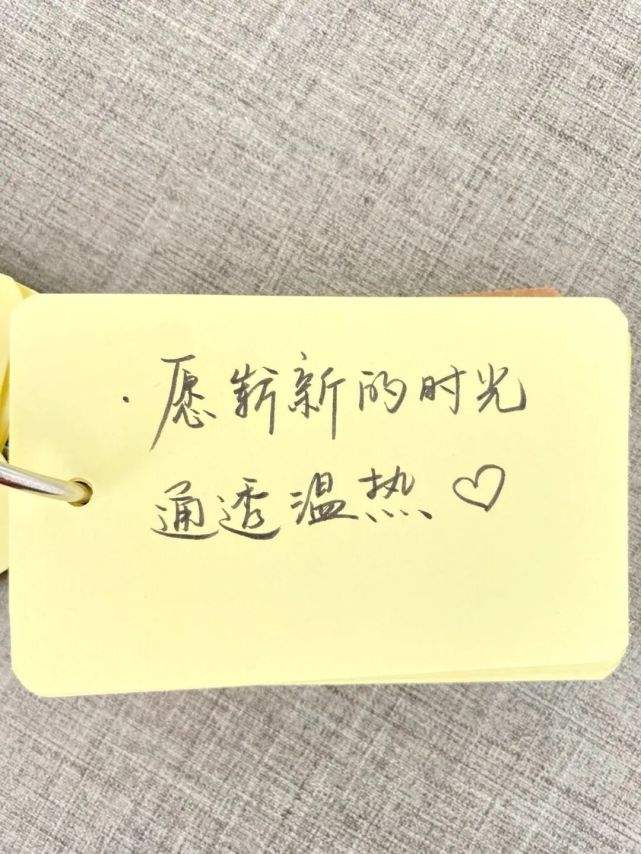 ·愿崭新的时光
通透温热♡